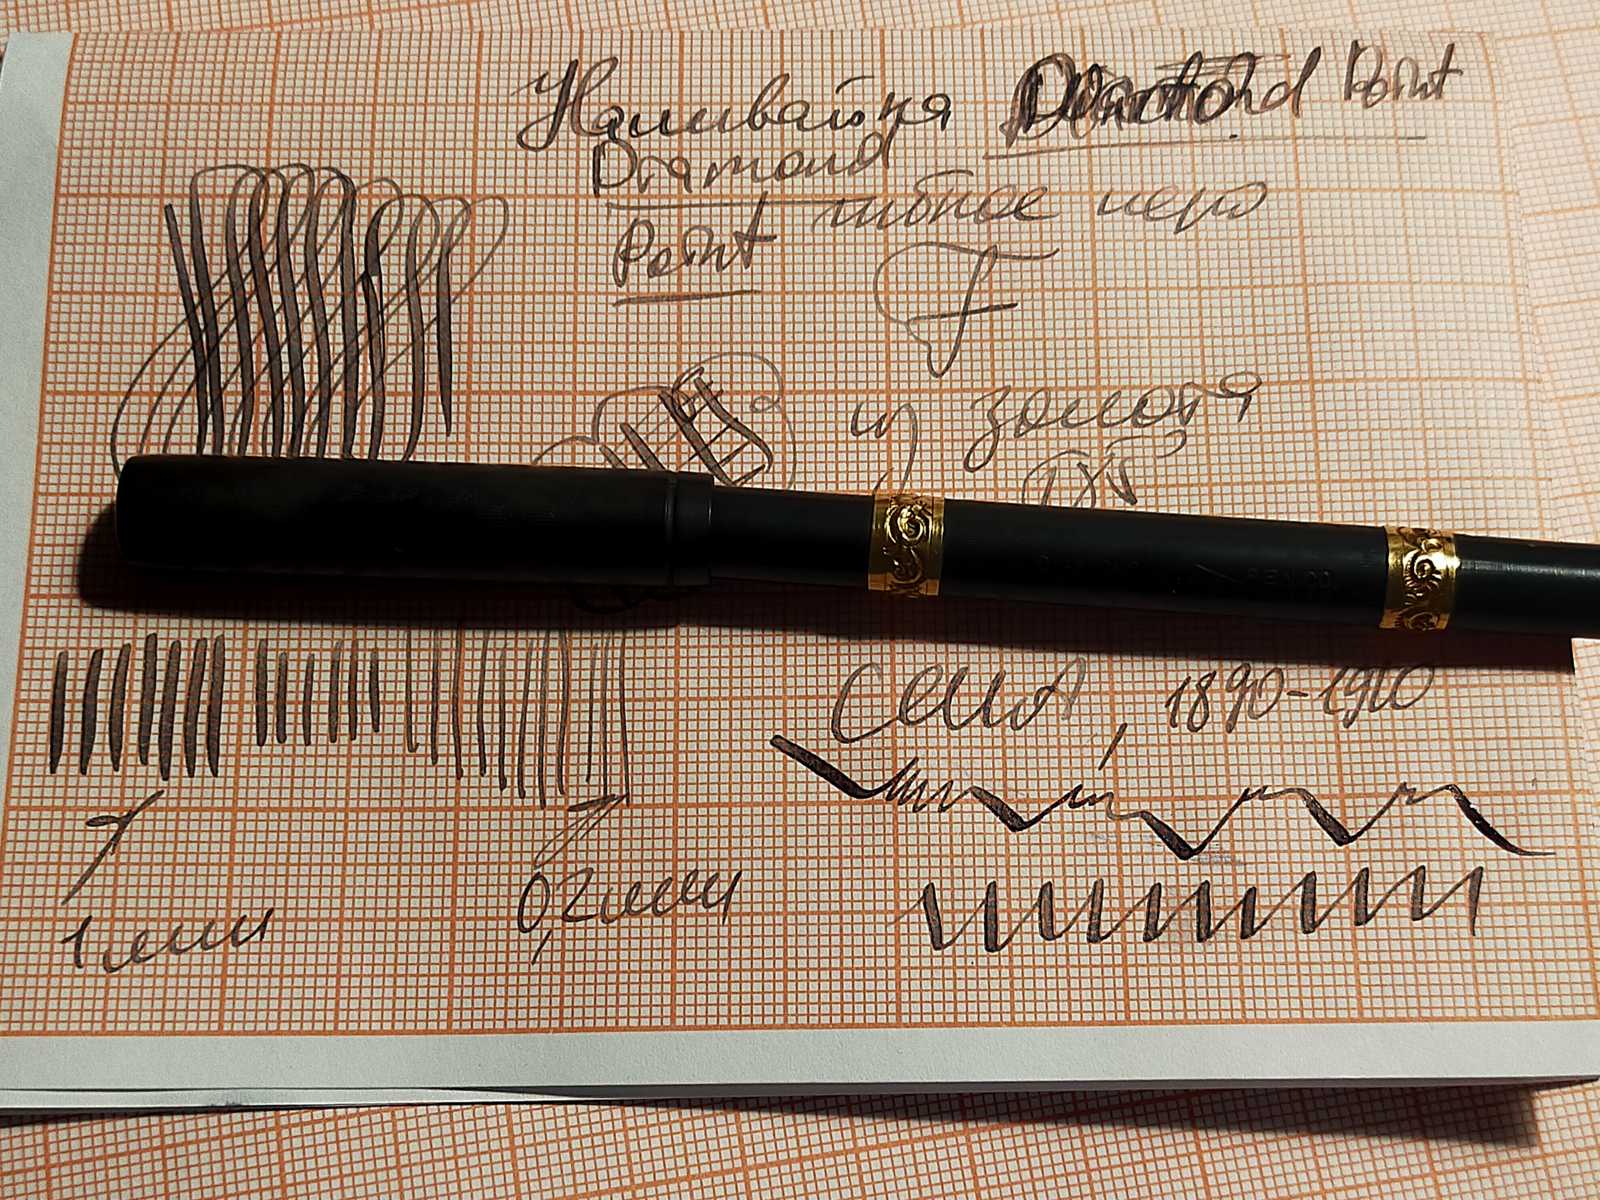 Наливайка Diamond Point
Diamond
Point гибкое перо
F
из золота
1мм
0,2мм
США, 1890-1910
PEN CO